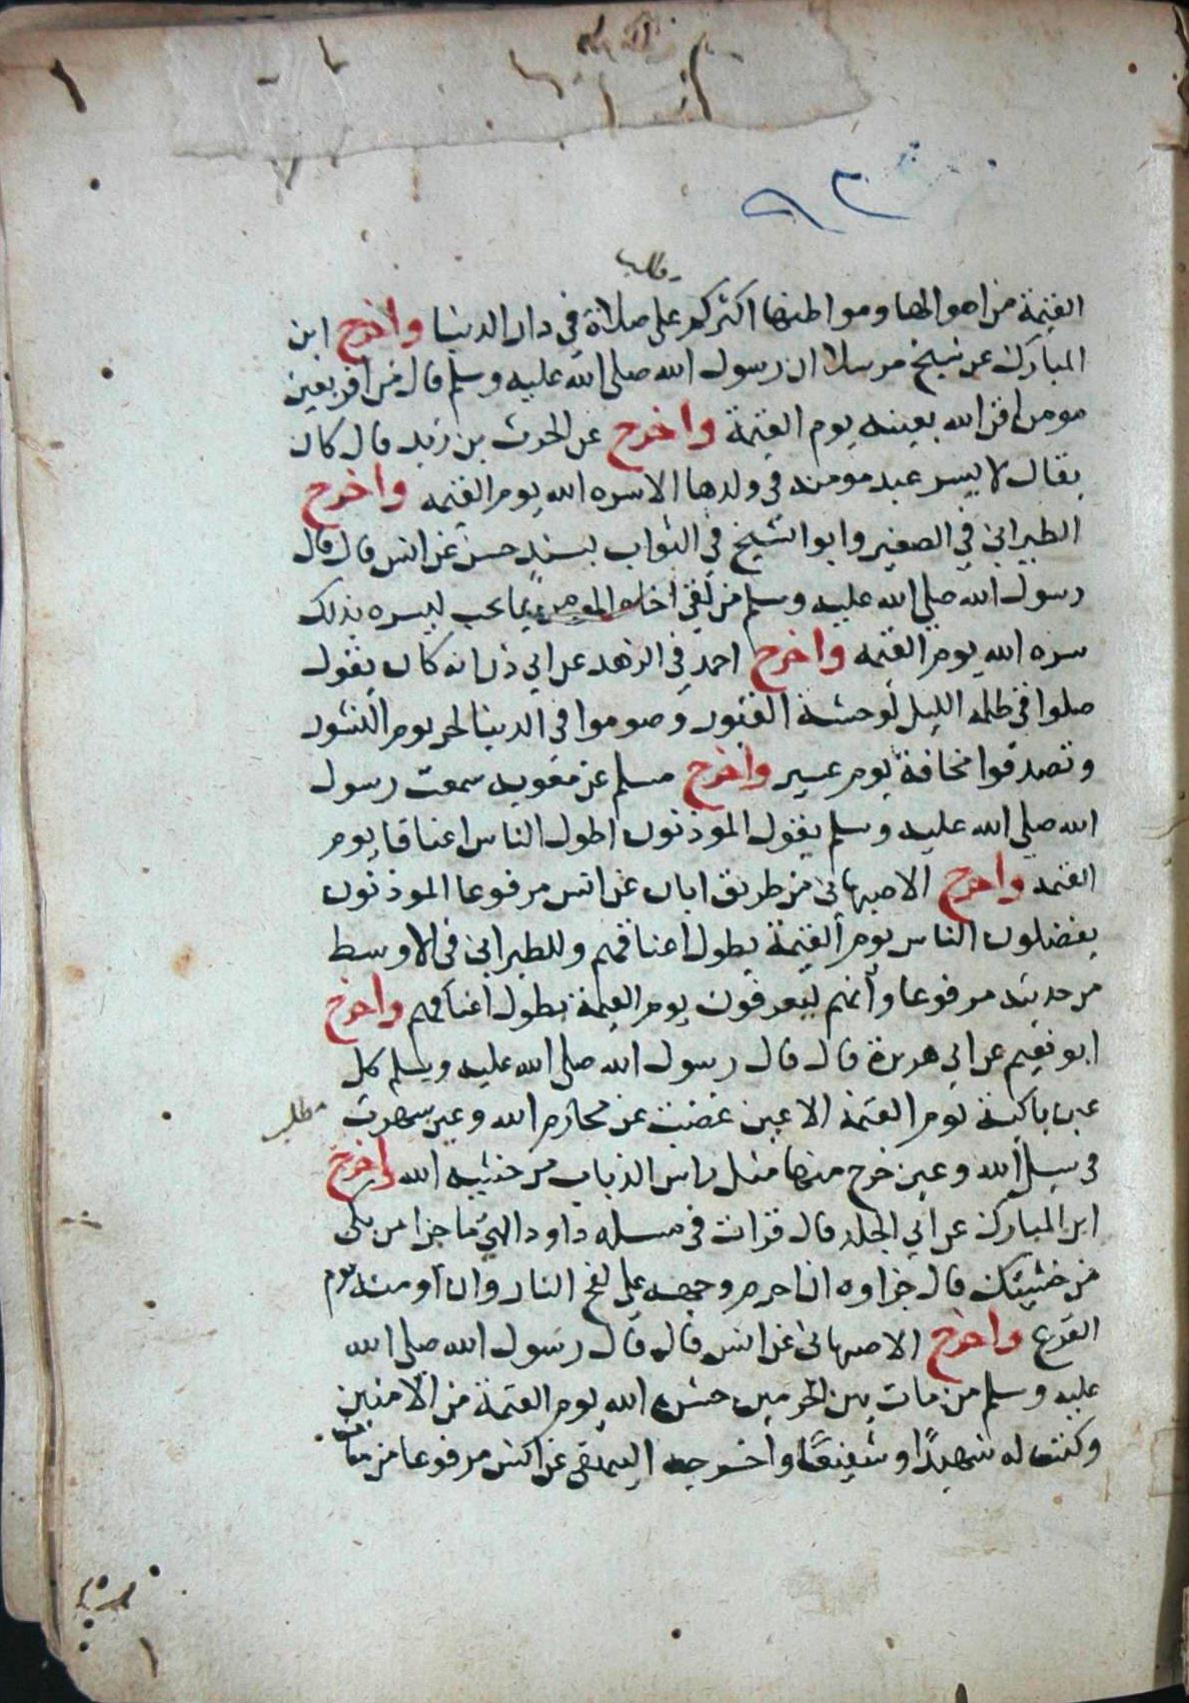 مطلب
القيمة من اهوالها ومواطنها اكثركم على صلاة في دار الدنيا واخرج ابن
المبارك عن شيخ مرسلا ان رسول الله صلى الله عليه وسلم قال من اقر بعين
مومن اقر الله بعينه يوم القيمة واخرج عن الحرث بن زيد قال كان
يقال لا يسر عبد مومنه في ولدها الا سره الله يوم القيمه واخرج
الطبراني في الصغير وابو الشيخ في الثواب بسند حسن عن انس قال قال
رسول الله صلى الله عليه وسلم من لقى اخاه المومن بما يحب ليسره بذلك
سره الله يوم القيمه واخرج احمد في الزهد عن ابي ذر انه كان يقول
صلوا في ظلمه الليل لوحشة القبور وصوموا في الدنيا لحر يوم النشور
وتصدقوا مخافة يوم عسير واخرج مسلم عن معويه سمعت رسول
الله صلى الله عليه وسلم يقول الموذنون اطول الناس اعناقا يوم
القيمه واخرج الاصبهانى من طريق ابان عن انس مرفوعا الموذنون
يفضلون الناس يوم القيمة بطول اعناقهم وللطبراني فى الاوسط
من حديثه مرفوعا وانهم ليعرفون يوم القيمة بطول اعناقهم واخرج
ابو نعيم عن ابي هريرة قال قال رسول الله صلى الله عليه وسلم كل
عين باكية يوم القيمة الا عين غضت عن محارم الله وعين سهرت
مطلب
في سبيل الله وعين خرج منها مثل راس الذباب من خشيه الله واخرج
ابن المبارك عن ابي الجلد قال قرات في مسله داود الهي ما جزا من بكى
من خشيتك قال جزاوه ان احرم وجهه على لفح النار وان اومنه يوم
الفزع واخرج الاصبهانى عن انس قال قال رسول الله صلى الله
عليه وسلم من مات بين الحرمين حشره الله يوم القيمة من الامنين
وكنت له شهيدًا او شفيعًا واخرجه البيهقى عن انس مرفوعا من مات